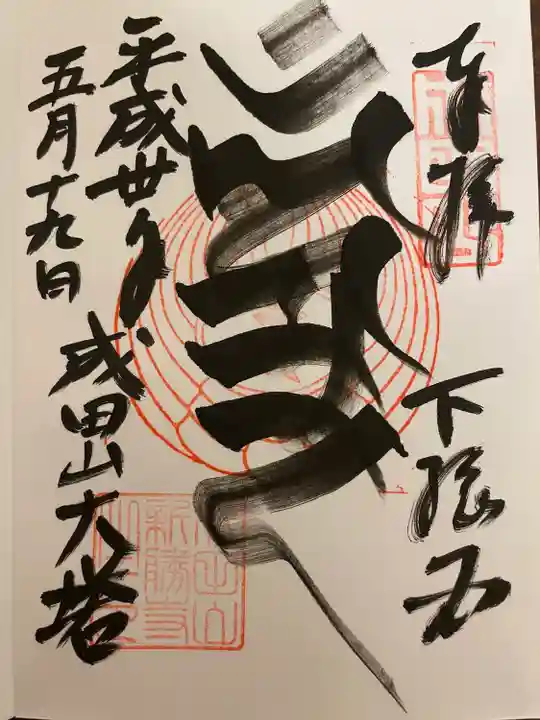 奉拝
下総国
成田山大塔
平成卅年
五月十九日
新勝寺